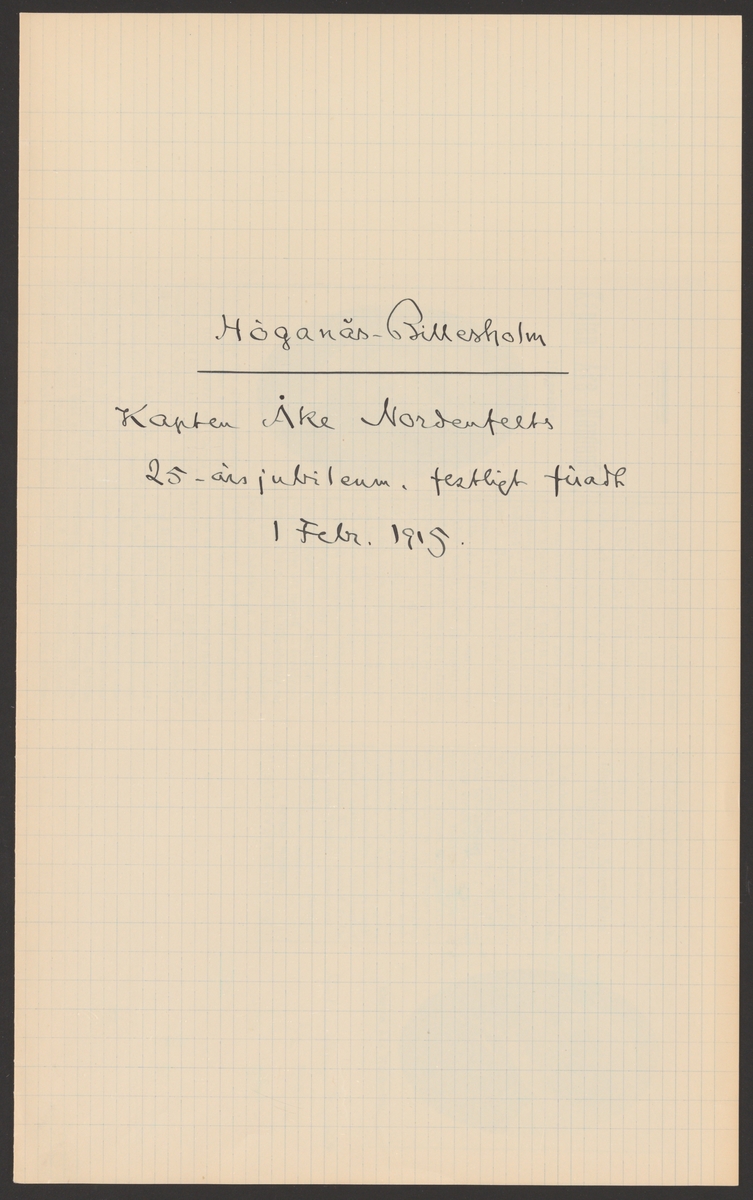 Höganäs-Billesholm
Kapten Åke Nordenfelts
25-årsjubileum. festligt firadt
1 Febr. 1915.